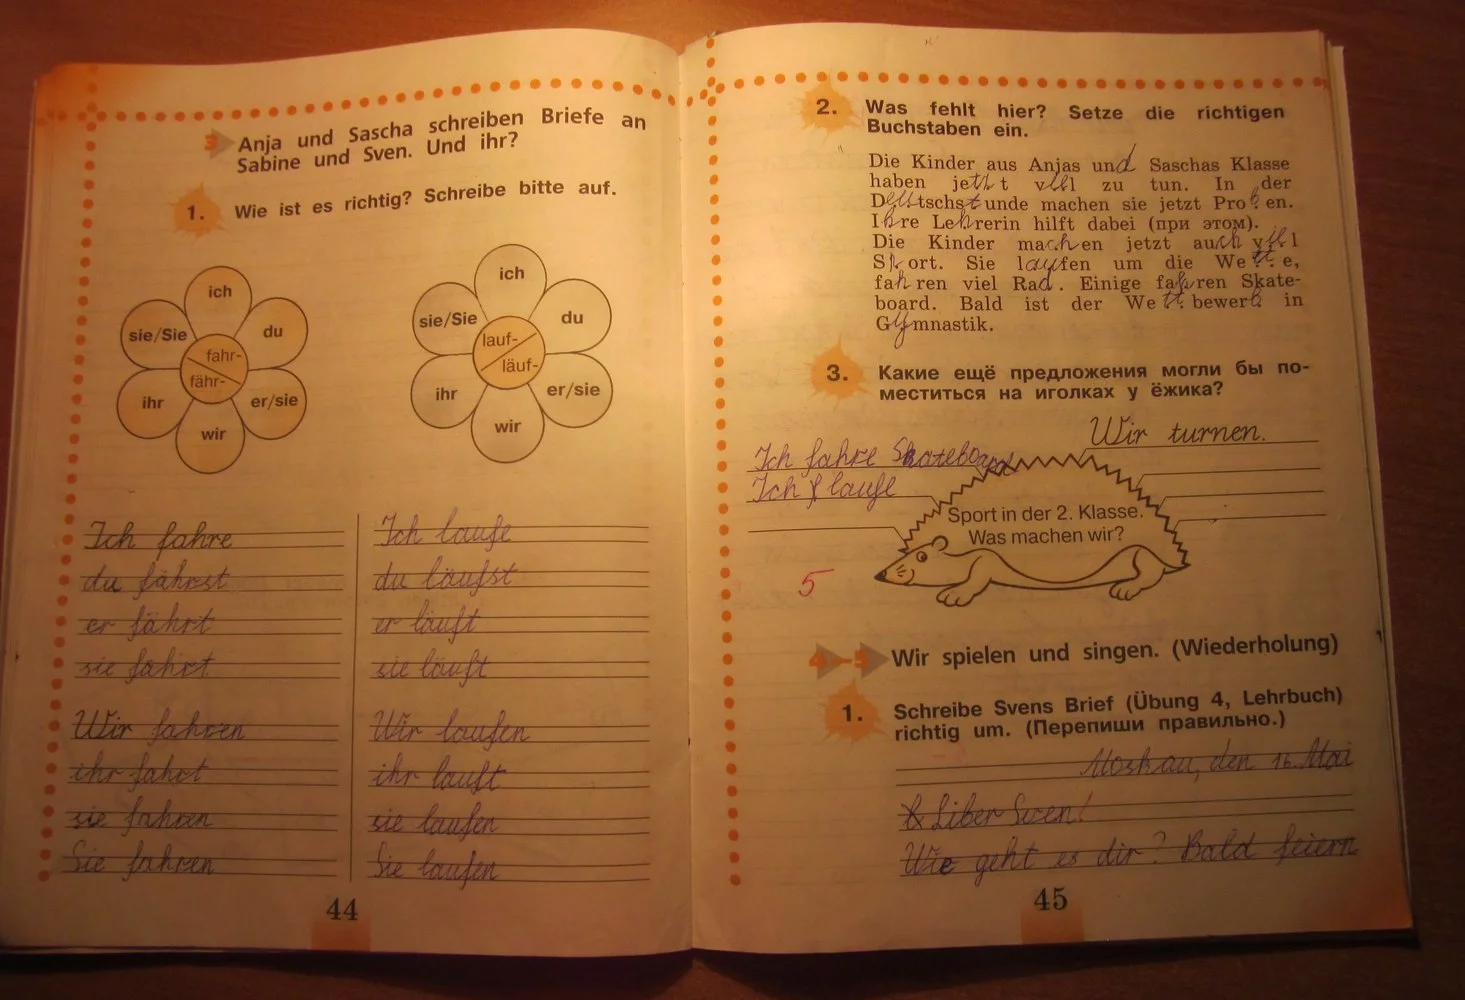 3 Anja und Sascha schreiben Briefe an
Sabine und Sven. Und ihr?
1. Wie ist es richtig? Schreibe bitte auf.
ich
du
er/sie
wir
ihr
sie/Sie
fahr-
fähr-
ich
du
er/sie
wir
ihr
sie/Sie
lauf-
läuf-
Ich fahre
du fährst
er fährt
sie fährt
Wir fahren
ihr fahrt
sie fahren
Sie fahren
Ich laufe
du läufst
er läuft
sie läuft
Wir laufen
ihr lauft
sie laufen
Sie laufen
44
2. Was fehlt hier? Setze die richtigen
Buchstaben ein.
Die Kinder aus Anjas und Saschas Klasse
haben t zu tun. In der
machen sie jetzt Proben.
Ihre Lehrerin hilft dabei (при этом).
Die Kinder machen jetzt auch
Sport. Sie laufen um die Wette,
fahren viel Rad. Einige fahren Skate-
board. Bald ist der Wettbewerb in
Gymnastik.
3. Какие ещё предложения могли бы по-
меститься на иголках у ёжика?
Wir turnen.
Ich fahre Skateboard
Ich laufe
Sport in der 2. Klasse.
Was machen wir?
5
4-5 Wir spielen und singen. (Wiederholung)
1. Schreibe Svens Brief (Übung 4, Lehrbuch)
richtig um. (Перепиши правильно.)
Moskau, den 16. Mai
Liber Swen!
Wie geht es dir? Bald feiern
45